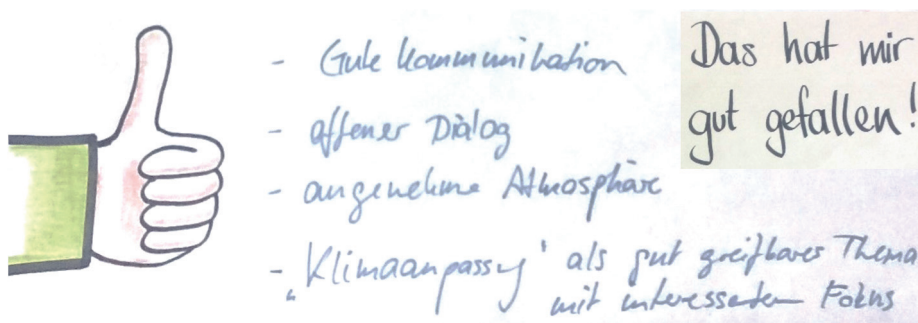 Das hat mir
gut gefallen!
- Gute Kommunikation
- offener Dialog
- angenehme Atmosphäre
- „Klimaanpassung‘ als gut greifbares Thema
mit interessantem Fokus